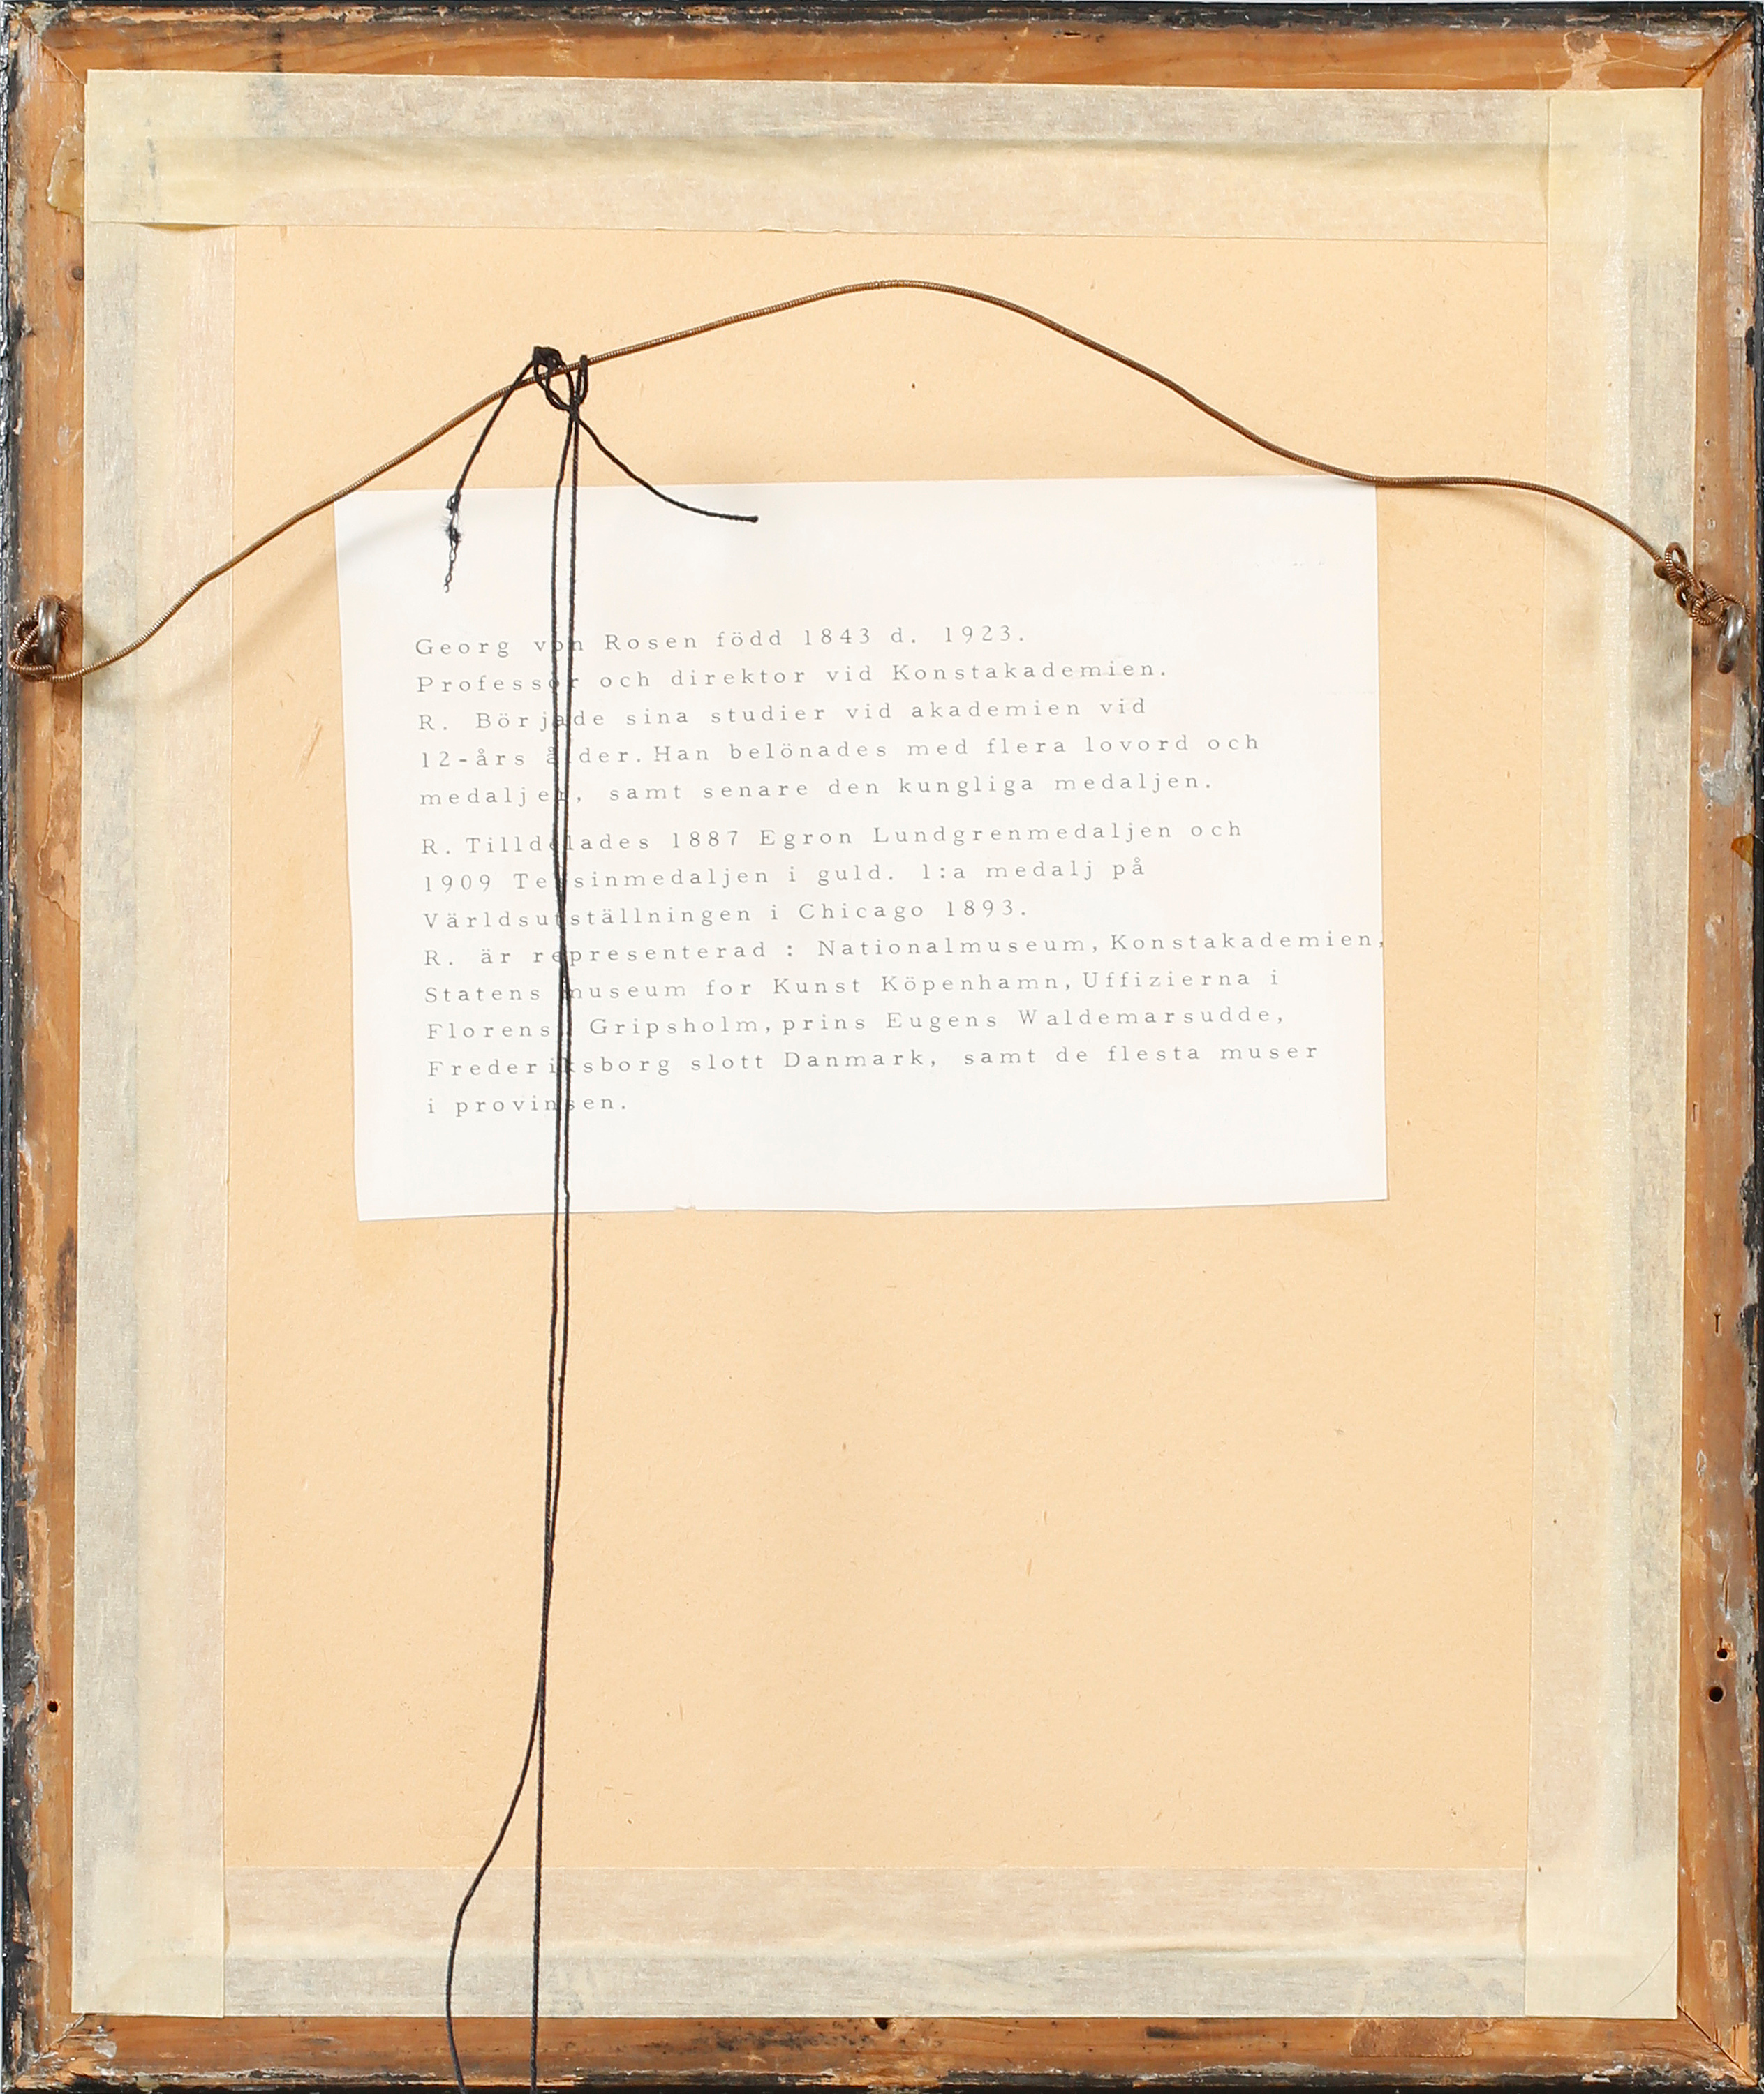 Georg von Rosen född 1843 d. 1923.
Professor och direktor vid Konstakademien.
R. Började sina studier vid akademien vid
12-års ålder.Han belönades med flera lovord och
medaljer, samt senare den kungliga medaljen.
R. Tilldelades 1887 Egron Lundgrenmedaljen och
1909 Tessinmedaljen i guld. 1:a medalj på
Världsutställningen i Chicago 1893.
R. är representerad : Nationalmuseum,Konstakademien,
Statens museum for Kunst Köpenhamn,Uffizierna i
Florens, Gripsholm,prins Eugens Waldemarsudde,
Frederiksborg slott Danmark, samt de flesta muser
i provinsen.